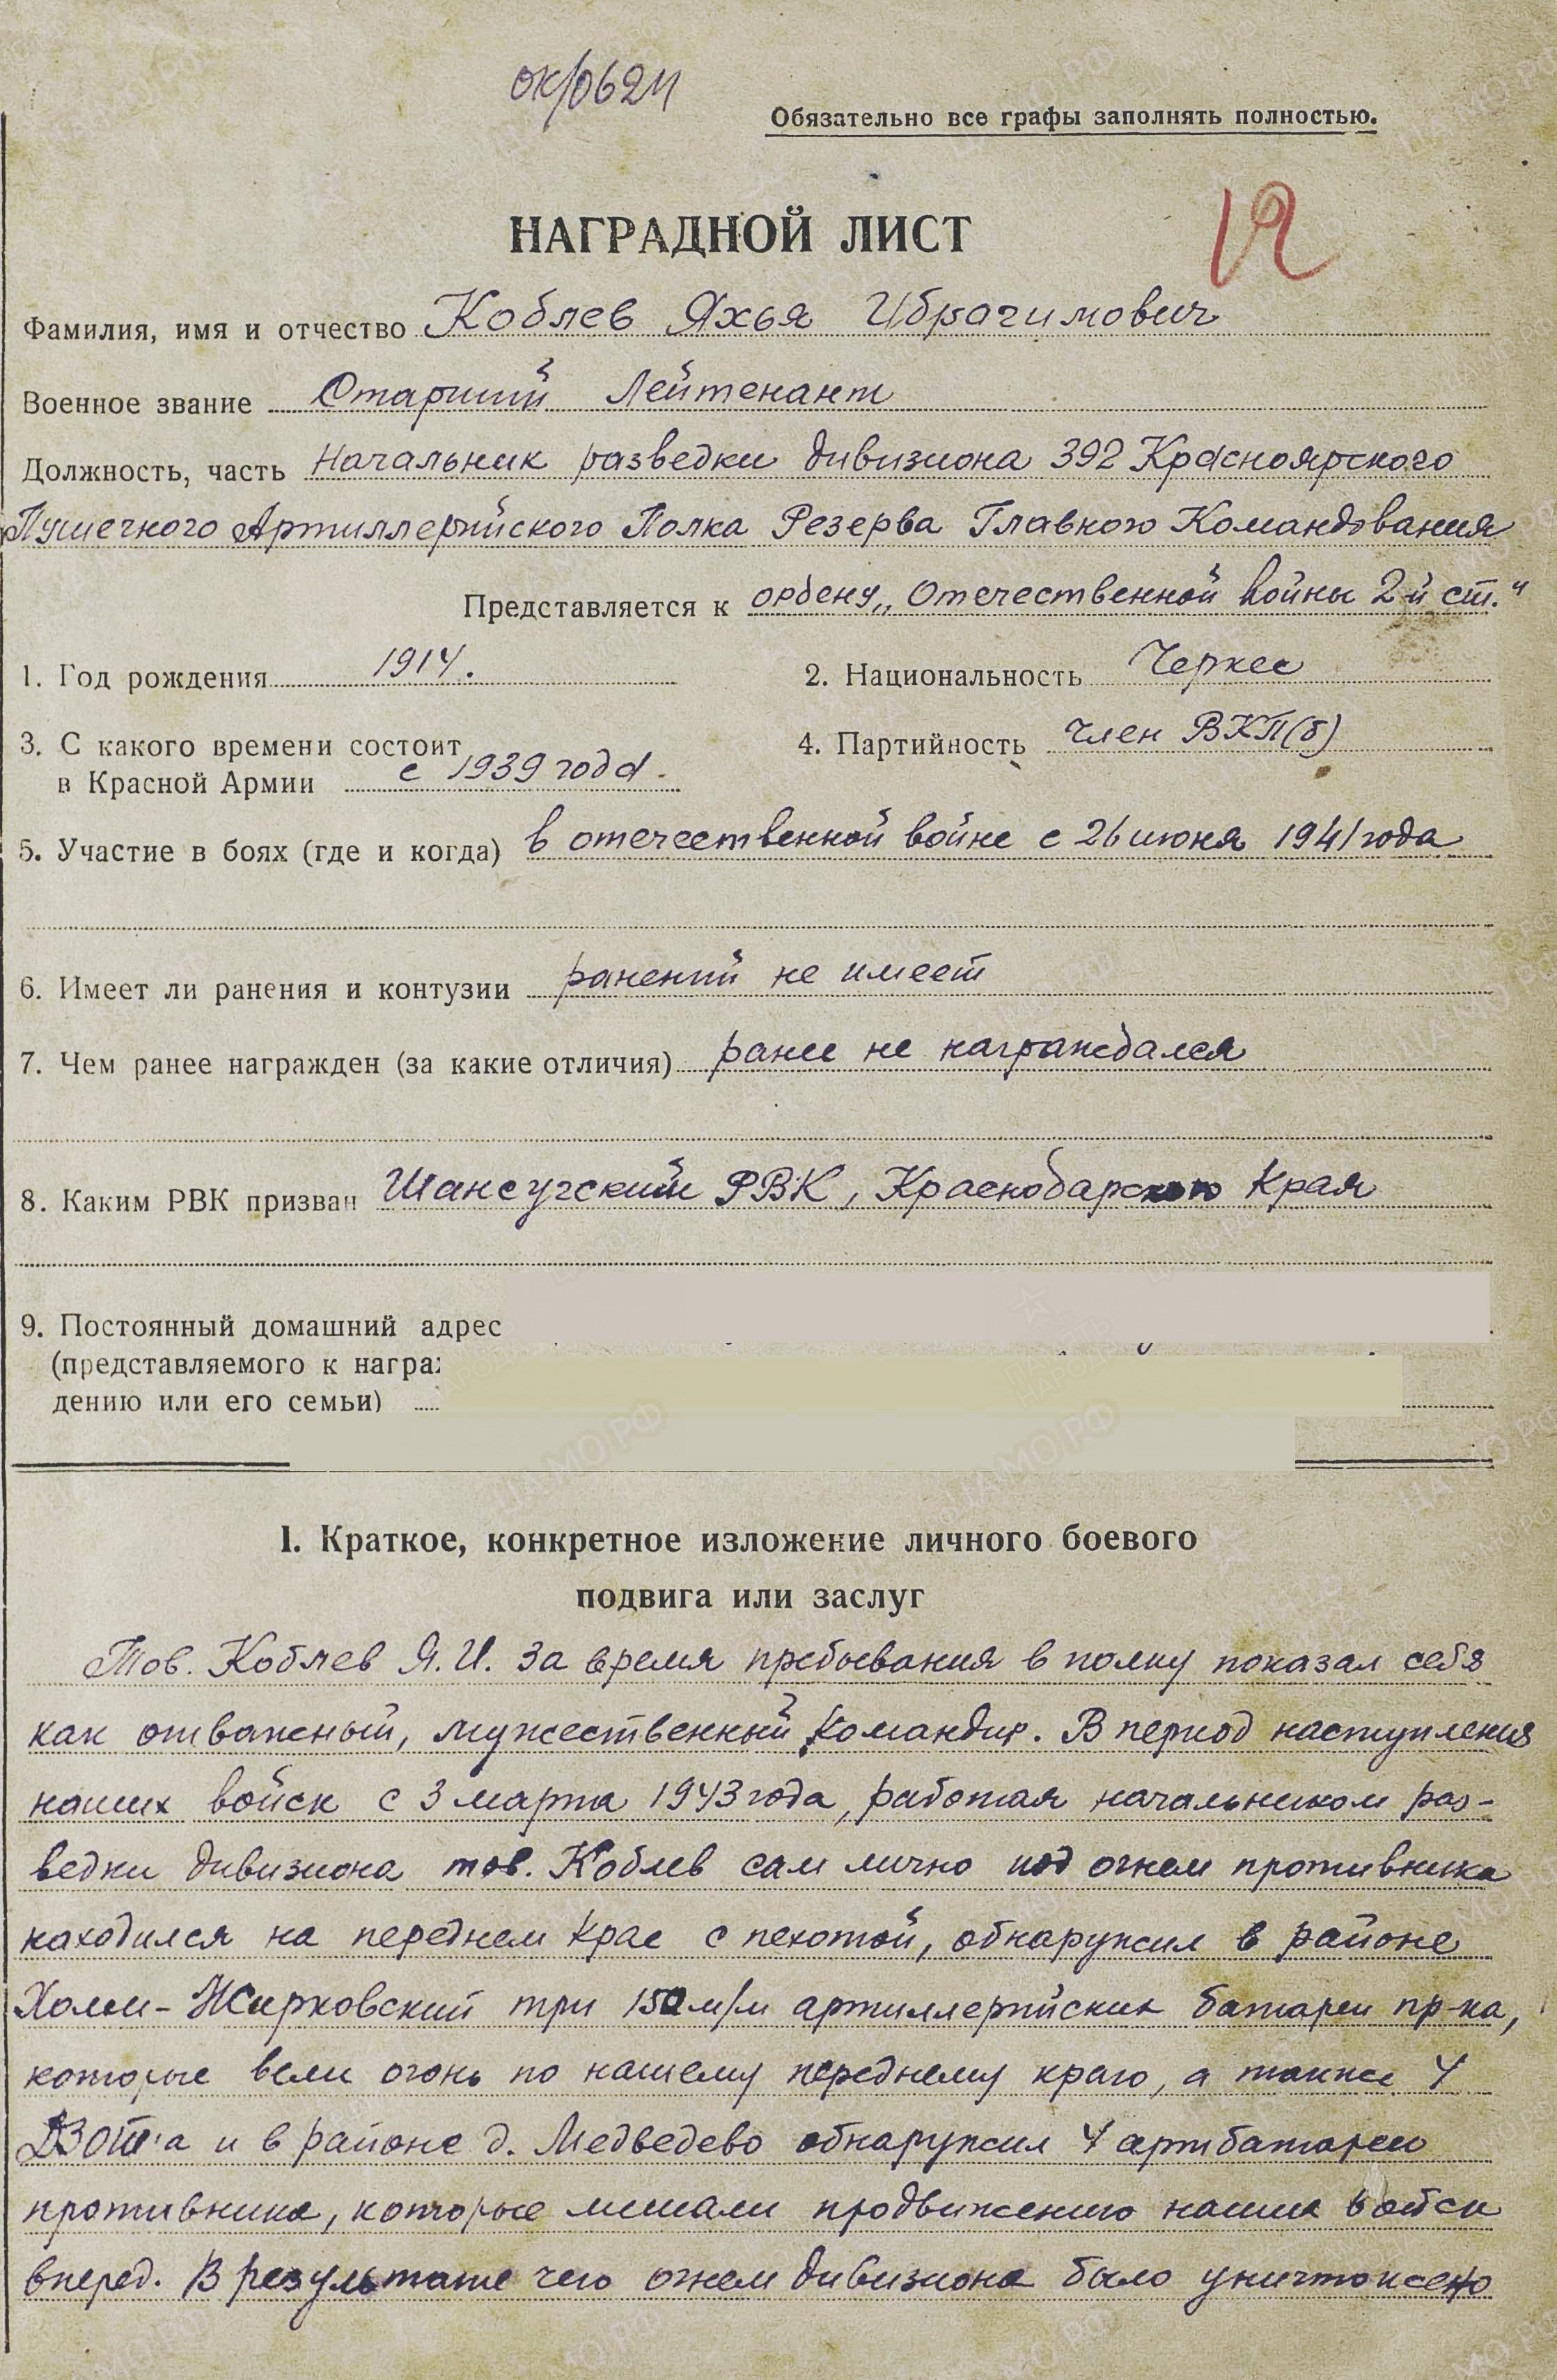 ок/0624
Обязательно все графы заполнять полностью.
НАГРАДНОЙ ЛИСТ
12
Фамилия, имя и отчество Коблев Яхья Ибрагимович
Военное звание Старший Лейтенант
Должность, часть Начальник разведки дивизиона 392 Красноярского
Пушечного Артиллерийского Полка Резерва Главного Командования
Представляется к ордену „Отечественной войны 2-й ст."
1. Год рождения 1914. 2. Национальность Черкес
3. С какого времени состоит
в Красной Армии с 1939 года. 4. Партийность член ВКП(б)
5. Участие в боях (где и когда) в отечественной войне с 26 июня 1941 года
6. Имеет ли ранения и контузии ранений не имеет
7. Чем ранее награжден (за какие отличия) ранее не награждался
8. Каким РВК призван Шапсугский РВК, Краснодарского Края
9. Постоянный домашний адрес
(представляемого к награ
дению или его семьи)
I. Краткое, конкретное изложение личного боевого
подвига или заслуг
Тов. Коблев Я. И. за время пребывания в полку показал себя
как отважный, мужественный командир. В период наступления
наших войск с 3 марта 1943 года, работая начальником раз-
ведки дивизиона тов. Коблев сам лично под огнем противника
находился на переднем крае с пехотой, обнаружил в районе
Холм-Жирковский три 150 м/м артиллерийских батареи пр-ка,
которые вели огонь по нашему переднему краю, а также 4
ДЗОТ'а и в районе д. Медведево обнаружил 4 артбатареи
противника, которые мешали продвижению наших войск
вперед. В результате чего огнем дивизиона было уничтожено
ЦАМО.РФ